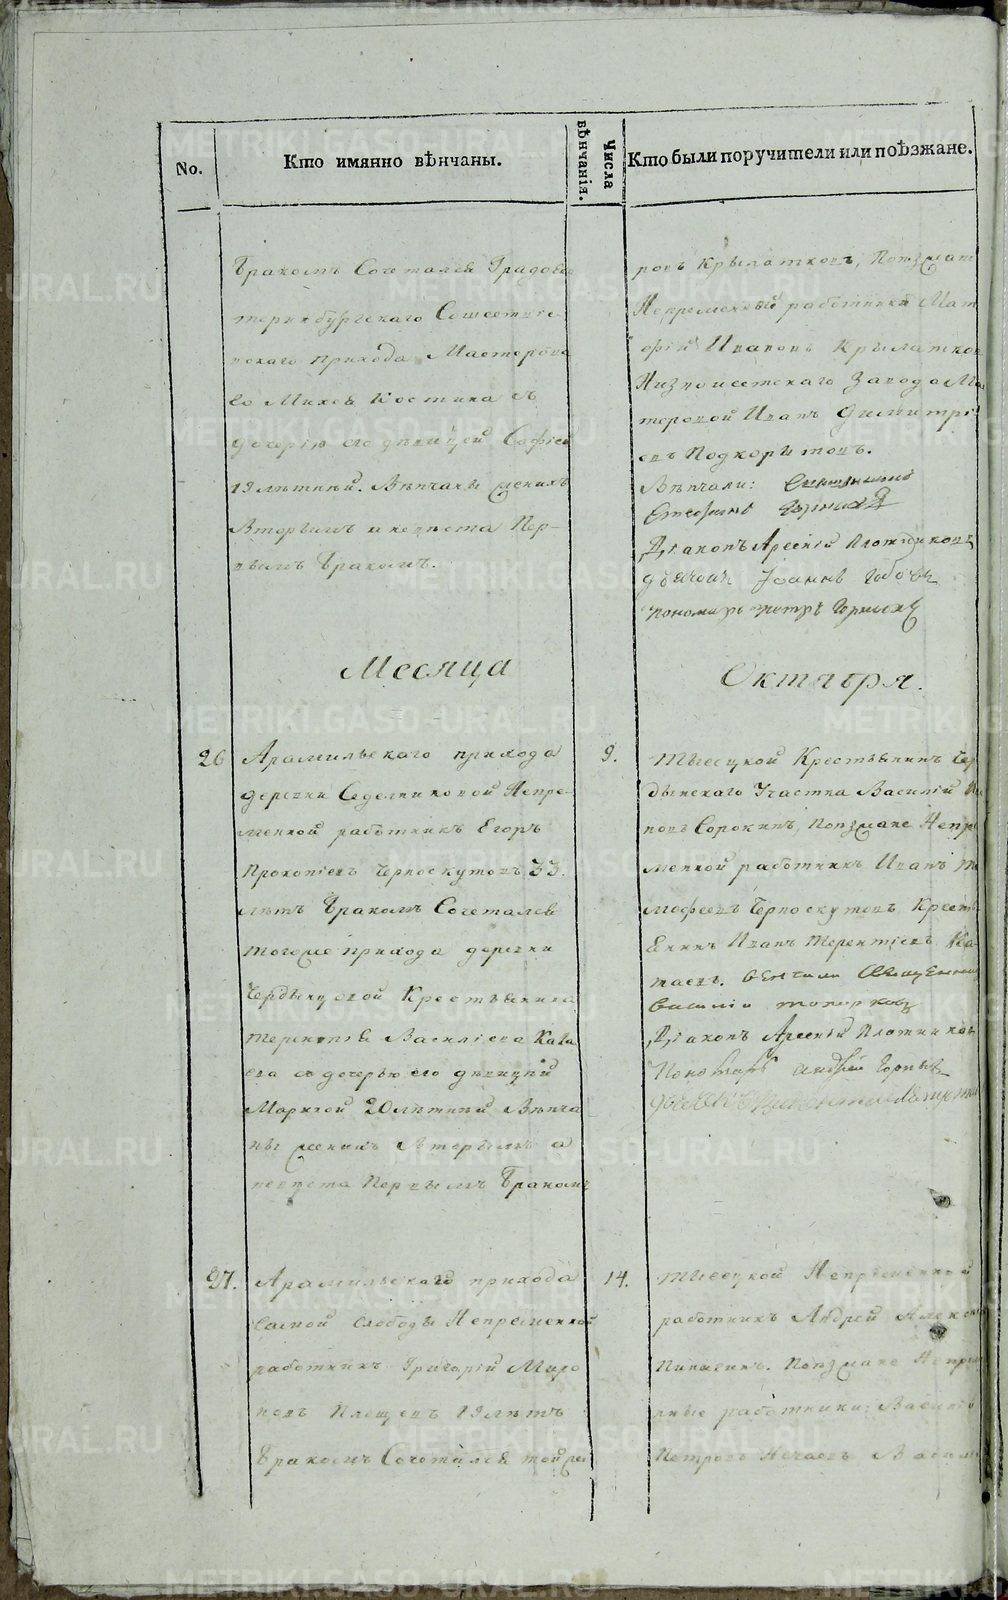 No.
Кто имянно вѣнчаны.
Числа вѣнчанія.
Кто были поручители или поѣзжане.
бракомъ Сочетался Градоека
теринбургскаго Сошестви
скаго прихода Мастерова
го Михея Костина съ
дочерію его дѣвицей Софіей
19 лѣтней. Вѣнчаны женихъ
вторымъ а невѣста Пер-
вымъ бракомъ.
ровъ Крылатковъ, Поѣзжан
Непременный работники Мат
фій Ивановъ Крылатков
Низноисетскаго Завода Ма
теровой Иванъ Димитрі
евъ Подкорытовъ.
Вѣнчали: Священникъ
Стефанъ
Діаконъ Арсеній Плотников
дьячокъ Іоаннъ
пономарь Петръ
Месяца
Октября.
26
Арамильскаго прихода
деревни Седельниковой Непре-
менной работникъ Егоръ
Прокопіевъ Черноскутовъ 33.
лѣтъ бракомъ Сочетался
тогоже прихода деревни
Крестьянина
Терентья Васильева Ката
ева съ дочерью его дѣвицей
Марѳой 20 лѣтней Вѣнча
ны женихъ вторымъ а
невѣста Первымъ бракомъ
9.
Тысецкой Крестьянинъ
дынскаго Участка Василій
новъ Сорокинъ, Поѣзжане Непре
менной работникъ Иванъ Ти
мофеевъ Черноскутовъ Кресть
янинъ Иванъ Терентіевъ Ка
таевъ. Вѣнчали Священник
Василій Топорков
Діаконъ Арсеній Плотников
Пономарь Андрей
27.
Арамильскаго прихода
самой слободы Непременной
работникъ Григорій Миро
новъ Плещевъ 19 лѣтъ
бракомъ Сочетался той же
14.
Тысецкой Непременной
работникъ Андрей Алексе
Поѣзжане Непрем
нные работники: Василій
Петровъ Нечаевъ Васил
METRIKI.GASO-URAL.RU